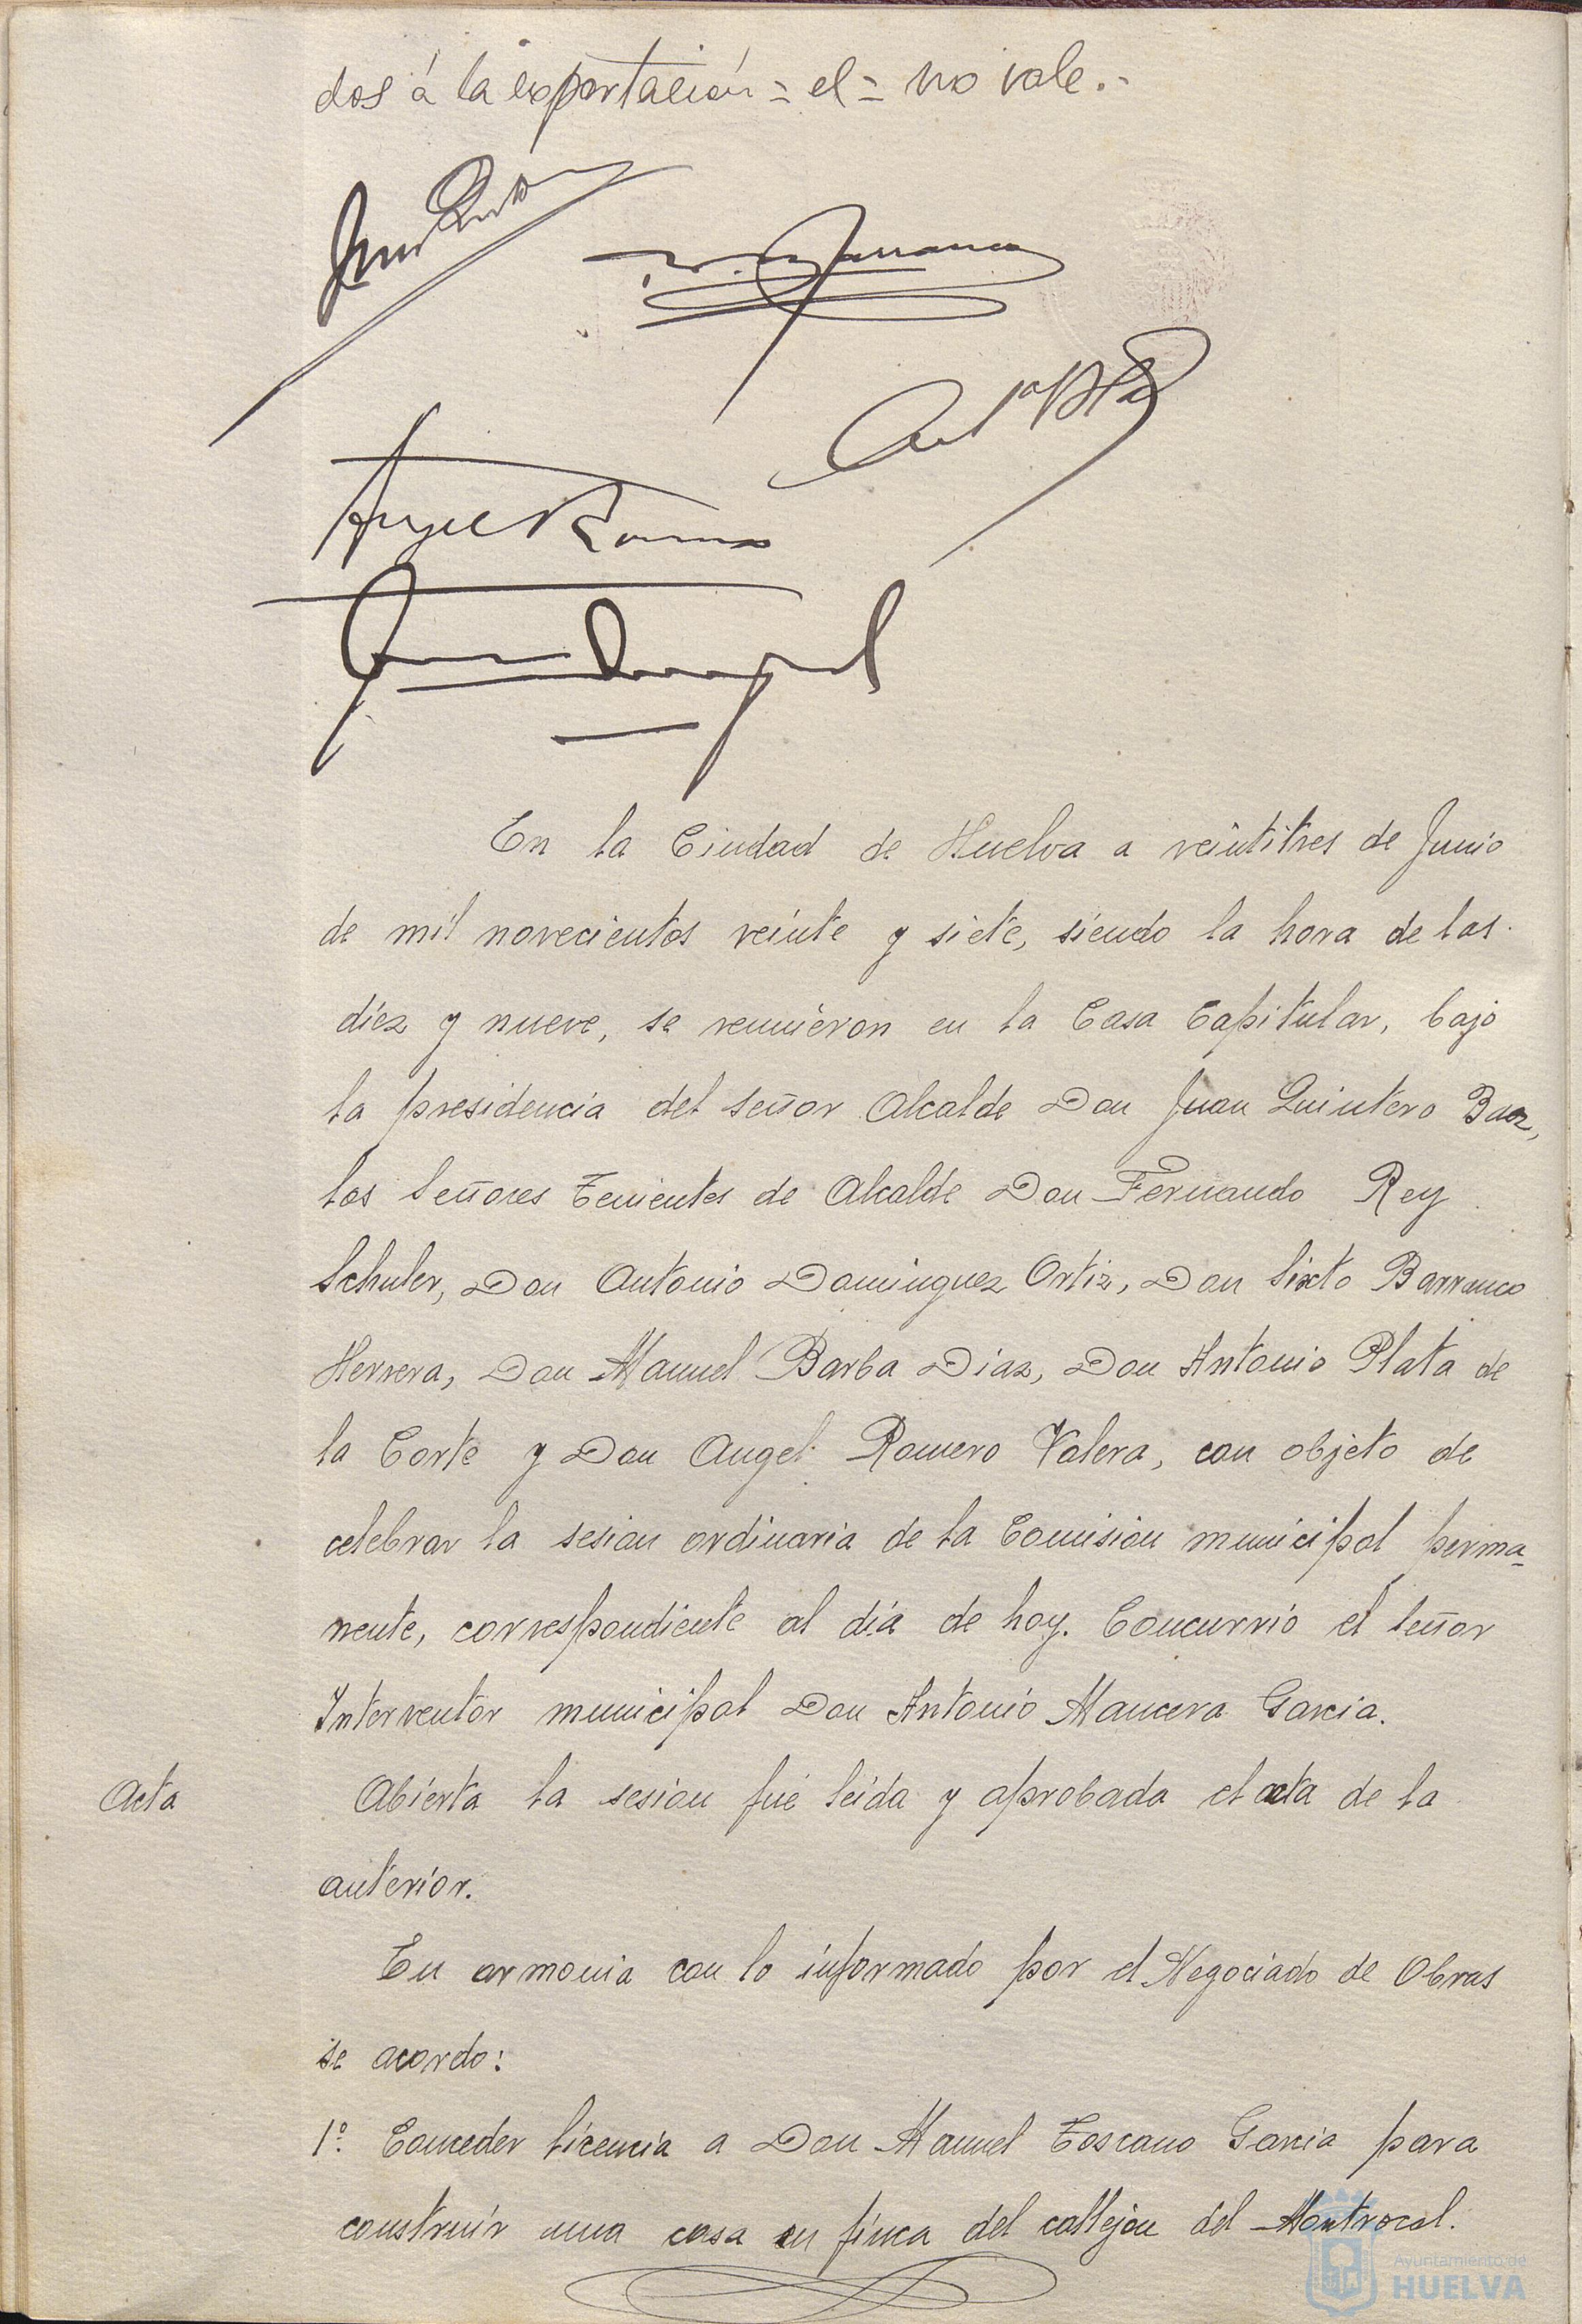 dos á la exportación = el = no vale.-
Angel Romero
En la Ciudad de Huelva a veintitres de Junio
de mil novecientos veinte y siete, siendo la hora de las
diez y nueve, se reunieron en la Casa Capitular, bajo
la presidencia del Señor Alcalde Don Juan Quintero Baez,
los Señores Tenientes de Alcalde Don Fernando Rey
Schuler, Don Antonio Dominguez Ortiz, Don Sixto Barranco
Herrera, Don Manuel Barba Diaz, Don Antonio Plata de
la Corte y Don Angel Romero Valera, con objeto de
celebrar la sesion ordinaria de la Comision municipal perma-
nente, correspondiente al dia de hoy. Concurrió el Señor
Interventor municipal Don Antonio Mancera Garcia.
Acta Abierta la sesion fué leida y aprobada el acta de la
anterior.
En armonia con lo informado por el Negociado de Obras
se acordo:
1º. Conceder licencia a Don Manuel Toscano Garcia para
construir una casa en finca del callejon del Montrocal.
Ayuntamiento de
HUELVA